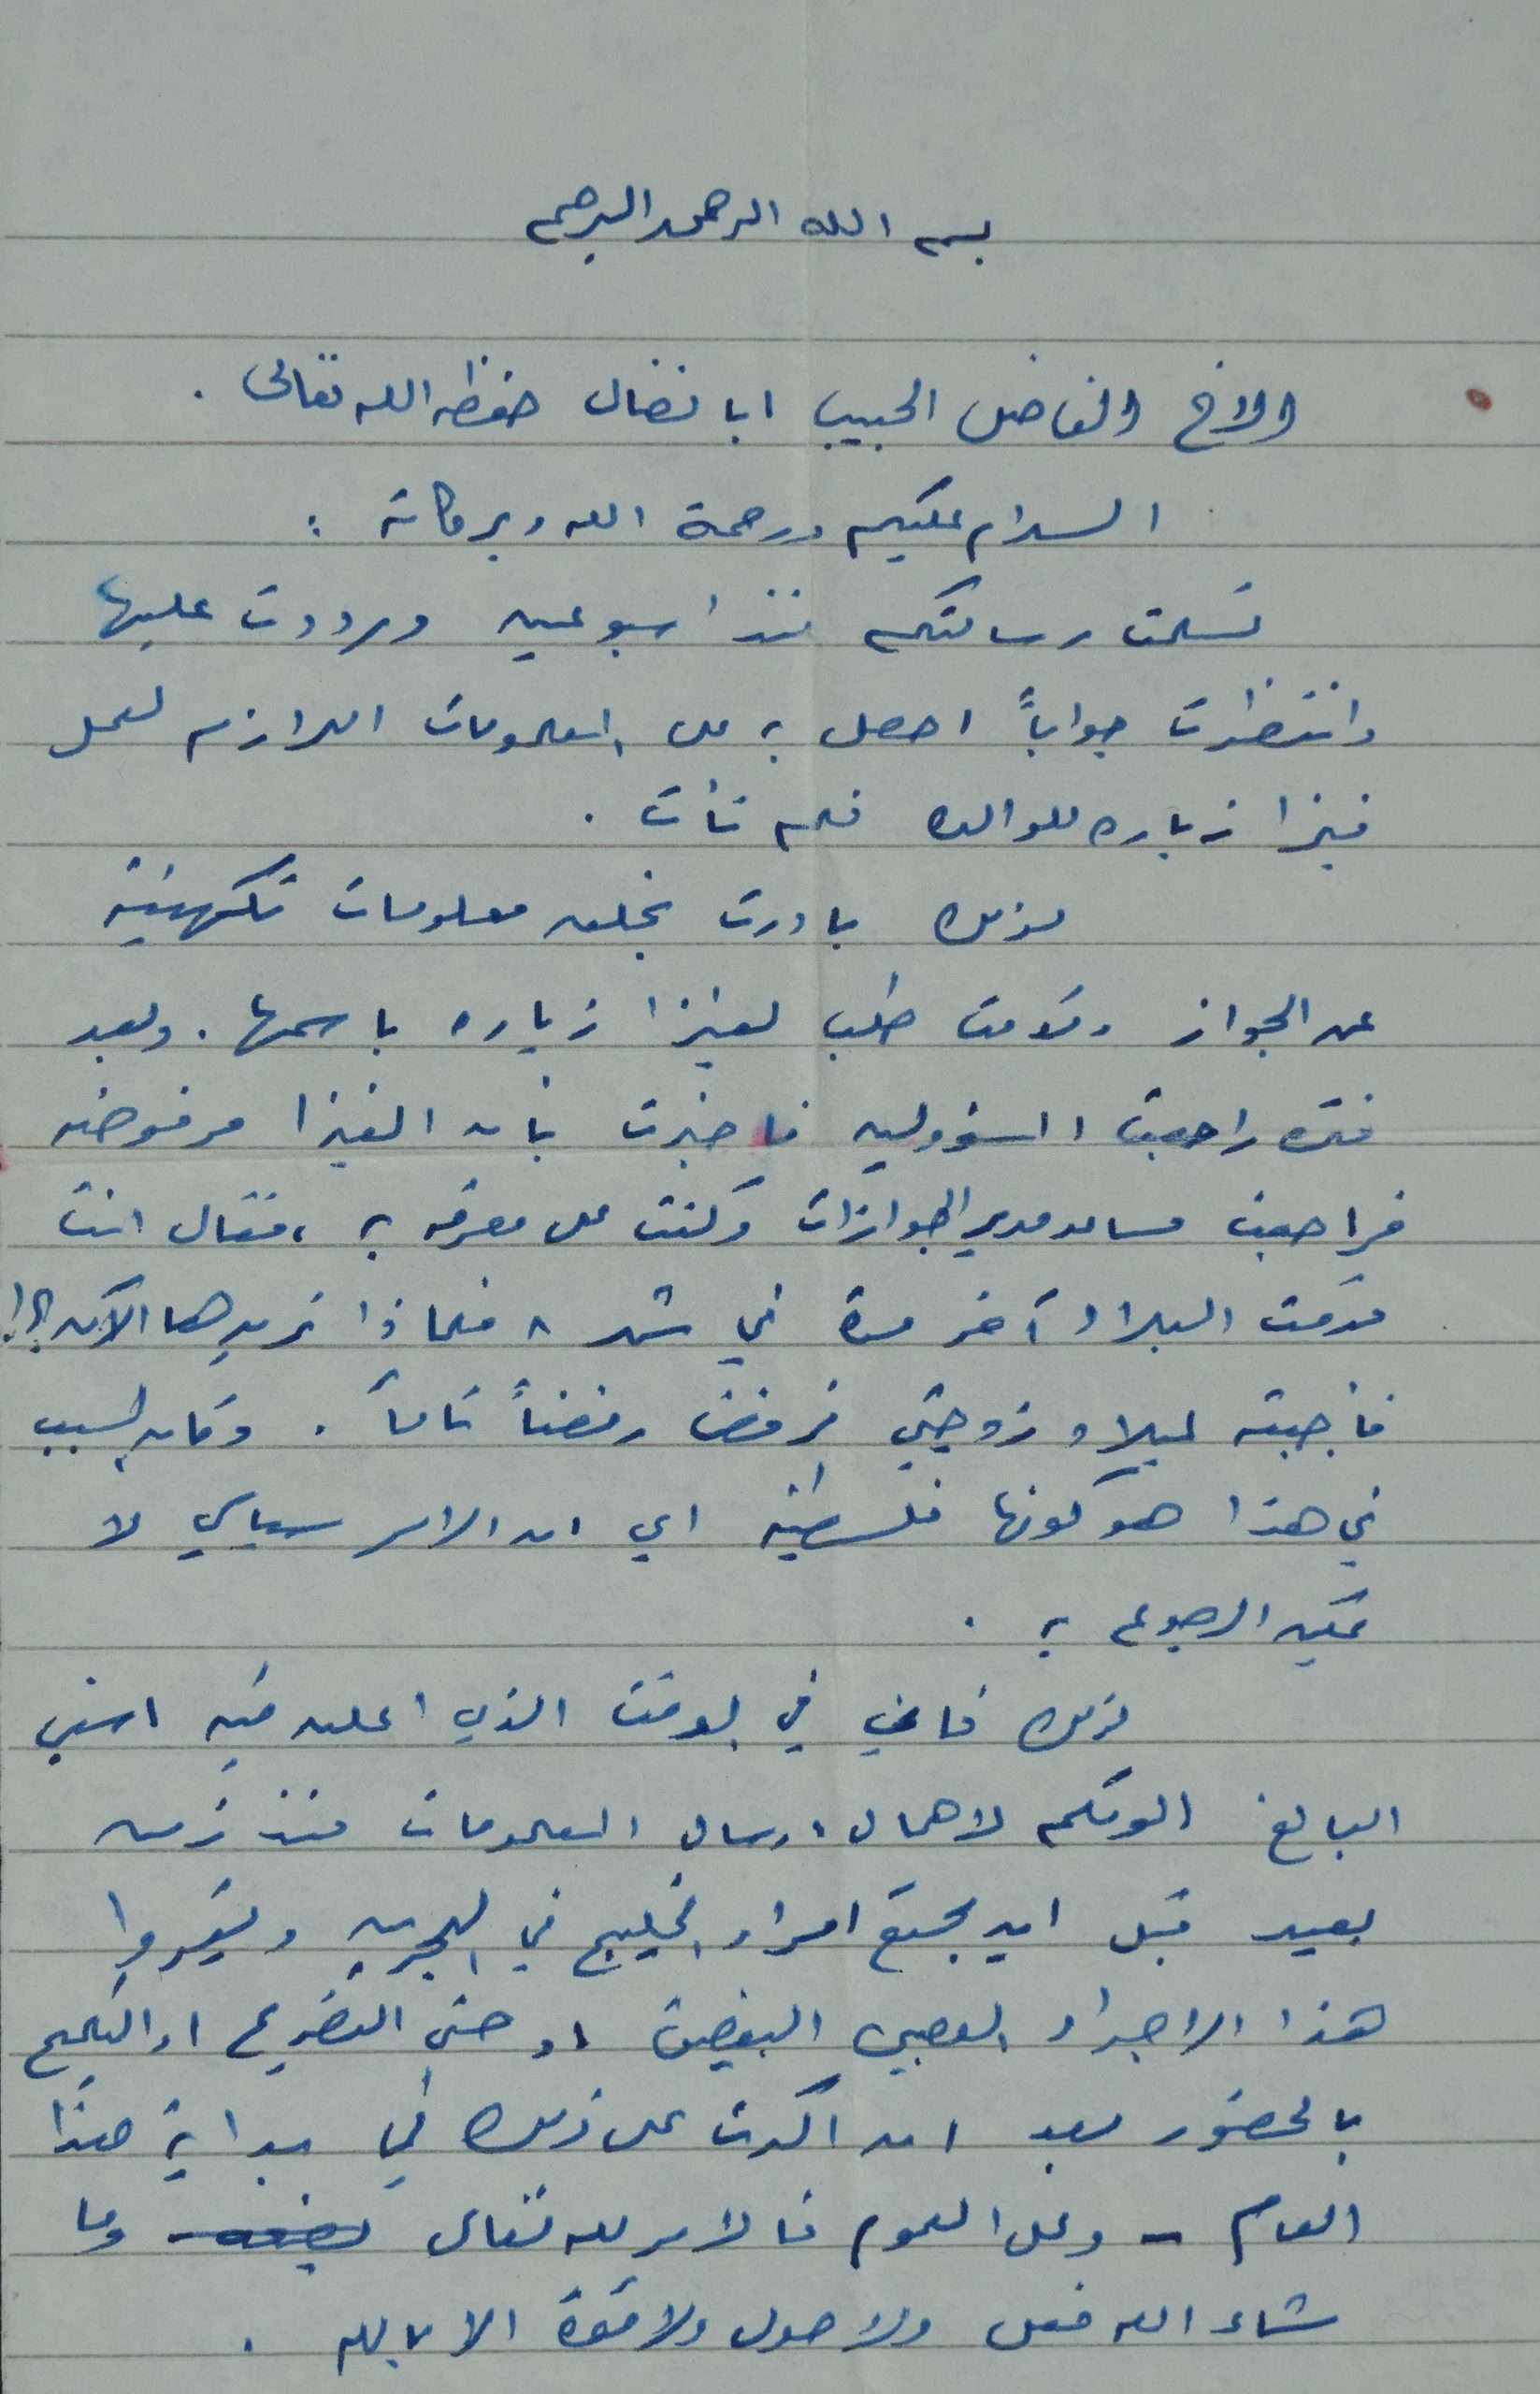 بسم الله الرحمن الرحيم
الاخ الفاضل الحبيب ابا نضال حفظه الله تعالى .
السلام عليكم ورحمة الله وبركاته :
تسلمت رسالتكم منذ اسبوعين ورددت عليها
وانتظرت جواباً احصل به على المعلومات اللازم لعمل
فيزا زياره للوالده فلم تأت .
لذلك بادرت بخلق معلومات تكهنية
عن الجواز وقدمت طلب لفيزا زياره باسمها . وبعد
فتره راجعت المسؤولين فاخبرت بان الفيزا مرفوضه
فراجعت مساعد مدير الجوازات وكنت على معرفه به ، فقال انت
قدمت البلاد آخر مرة في شهر ٨ فلماذا تريدها الآن ؟!
فأجبته لميلاد زوجتي فرفض رفضاً تاماً . وكان السبب
في هذا هو كونها فلسطينيه اي ان الامر سياسي لا
يمكن الرجوع به .
لذلك فانني في الوقت الذي اعلن فيه اسفي
البالغ الومكم لاهمال ارسال المعلومات منذ زمن
بعيد قبل ان يجتمع امراء الخليج في البحرين ويقرروا
هذا الاجراء العجيب البغيض او حتى التصريح او التلميح
بالحضور بعد ان اكدت على ذلك في بداية هذا
العام - وعلى العموم فالامر لله تعالى وما
شاء الله فعل ولا حول ولا قوة الا بالله .